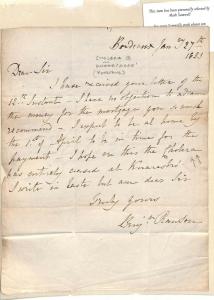 This item has been personally selected by
Bordeaux Jan 27th
1833
CHOLERA @
KNARESBORO'
(YORKSHIRE)
Dear Sir
I have received your letter of the
12th Instant - I have no objection to advance
the money for the mortgage you so much
recommend - I expect to be at home by
the 1st of April to be in time for the
payment - I hope ere this the Cholera
has entirely ceased at Knaresbro'
I write in haste but am dear Sir
Truly yours